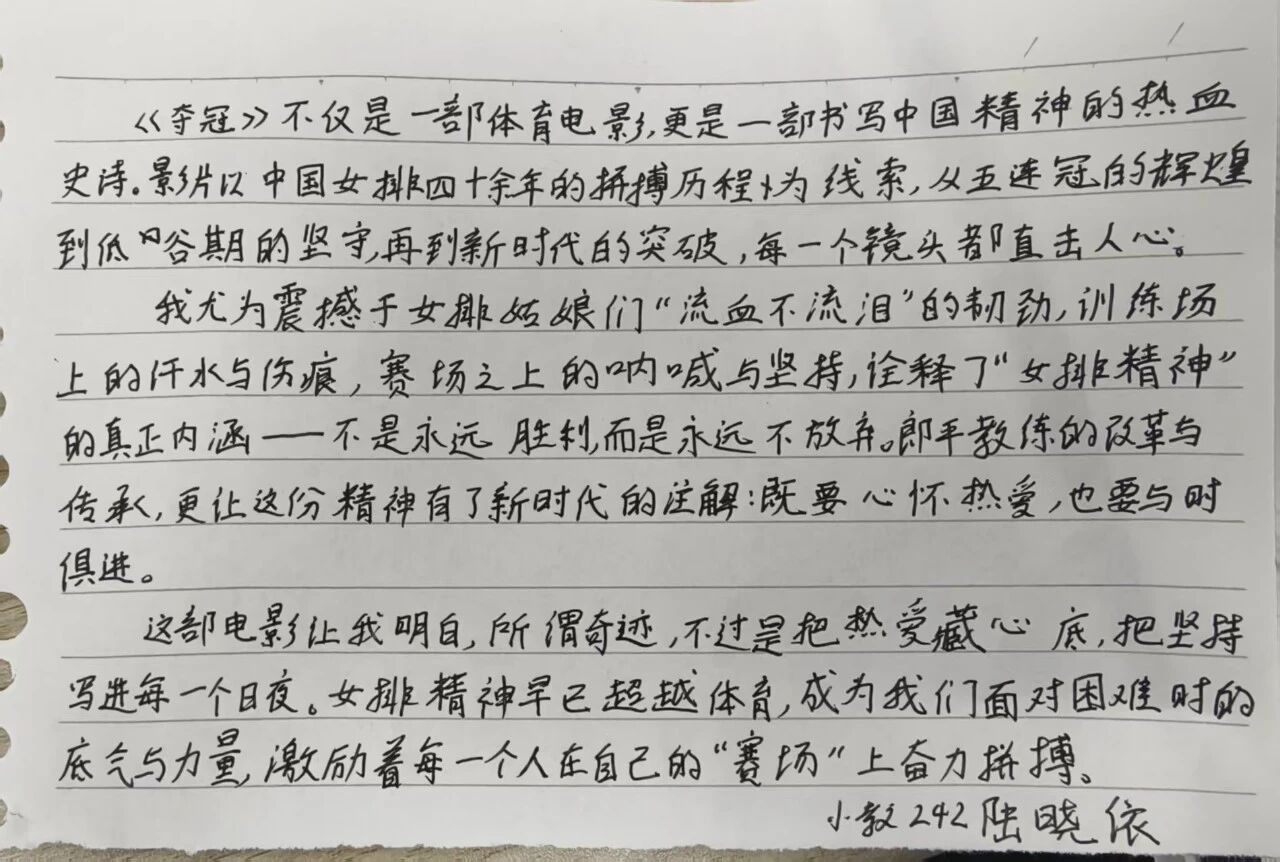 《夺冠》不仅是一部体育电影,更是一部书写中国精神的热血
史诗。影片以中国女排四十余年的拼搏历程为线索,从五连冠的辉煌
到低谷期的坚守,再到新时代的突破,每一个镜头都直击人心。
我尤为震撼于女排姑娘们“流血不流泪”的韧劲,训练场
上的汗水与伤痕,赛场之上的呐喊与坚持,诠释了“女排精神”
的真正内涵——不是永远胜利,而是永远不放弃。郎平教练的改革与
传承,更让这份精神有了新时代的注解:既要心怀热爱,也要与时
俱进。
这部电影让我明白,所谓奇迹,不过是把热爱藏心底,把坚持
写进每一个日夜。女排精神早已超越体育,成为我们面对困难时的
底气与力量,激励着每一个人在自己的“赛场“上奋力拼搏。
小教242陆晓依